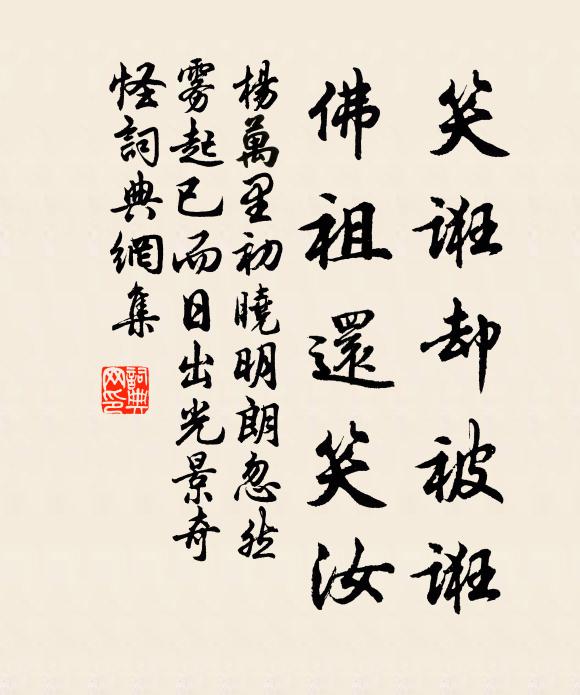 笑誑却被誑
佛祖還笑汝
楊萬里初曉明朗忽然
霧起已而日出光景奇
怪詞典網集
詞典
网印